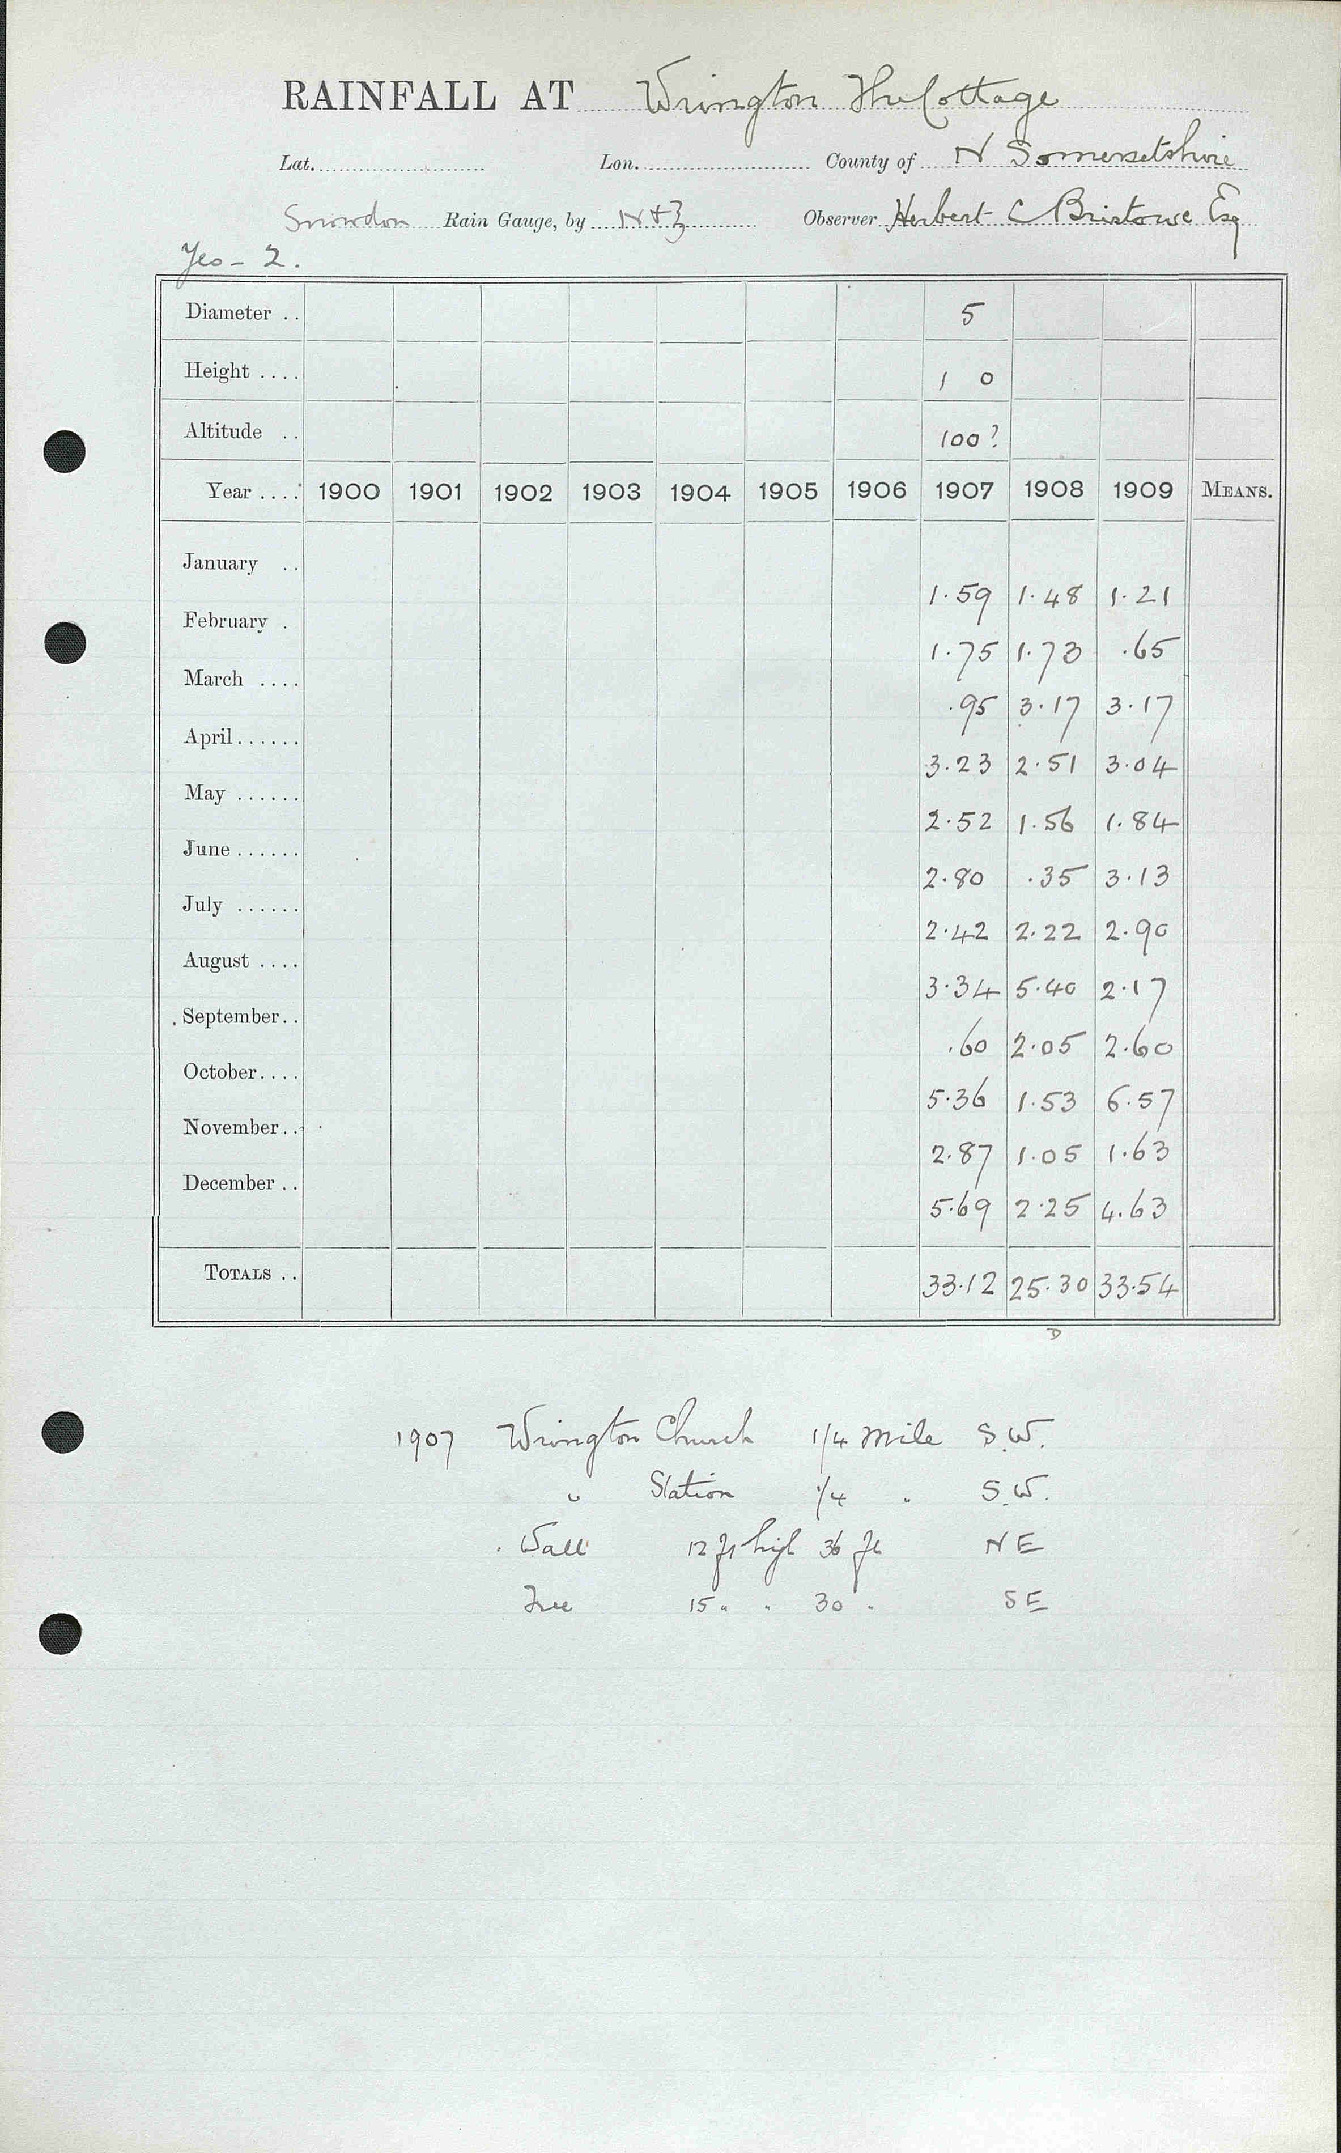 RAINFALL AT Wrington The Cottage
Lat. Lon. County of N Somersetshire
Snowdon Rain Gauge, by N & Z Observer Herbert C Bristowe Esq
Yeo - 2.
Diameter .. 5
Height .... 1 0
Altitude .. 100?
Year .... 1900 1901 1902 1903 1904 1905 1906 1907 1908 1909 MEANS.
January .. 1.59 1.48 1.21
February . 1.75 1.73 .65
March .... .95 3.17 3.17
April...... 3.23 2.51 3.04
May ...... 2.52 1.56 1.84
June ...... 2.80 .35 3.13
July ...... 2.42 2.22 2.90
August .... 3.34 5.40 2.17
September.. .60 2.05 2.60
October.... 5.36 1.53 6.57
November.. 2.87 1.05 1.63
December .. 5.69 2.25 4.63
TOTALS .. 33.12 25.30 33.54
D
1907 Wrington Church 1/4 mile S.W.
" Station 1/4 " S.W.
Wall 12 ft high 36 ft NE
Tree 15 " " 30 " SE